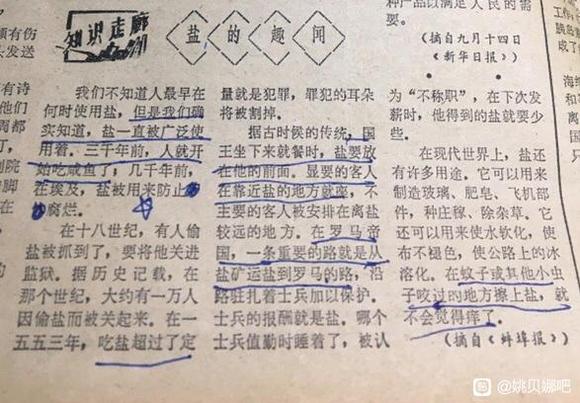 知识走廊
盐的趣闻
我们不知道人最早在
何时使用盐，但是我们确
实知道，盐一直被广泛使
用着。三千年前，人就开
始吃咸鱼了；几千年前，
在埃及，盐被用来防止
腐烂。
在十八世纪，有人偷
盐被抓到了，要将他关进
监狱。据历史记载，在
那个世纪，大约有一万人
因偷盐而被关起来。在一
五五三年，吃盐超过了定
量就是犯罪，罪犯的耳朵
将被割掉。
据古时候的传统，国
王坐下来就餐时，盐要放
在他的前面。显要的客人
在靠近盐的地方就座，不
主要的客人被安排在离盐
较远的地方。在罗马帝
国，一条重要的路就是从
盐矿运盐到罗马的路，沿
路驻扎着士兵加以保护。
士兵的报酬就是盐。哪个
士兵值勤时睡着了，被认
为“不称职”，在下次发
薪时，他得到的盐就要少
些。
在现代世界上，盐还
有许多用途。它可以用来
制造玻璃、肥皂、飞机部
件，种庄稼、除杂草。它
还可以用来使水软化，使
布不褪色，使公路上的冰
溶化。在蚊子或其他小虫
子咬过的地方擦上盐，就
不会觉得痒了。
（摘自《蚌埠报》）
种产品以满足人民的需
要。
（摘自九月十四日
《新华日报》）
有诗
他们
@姚贝娜吧